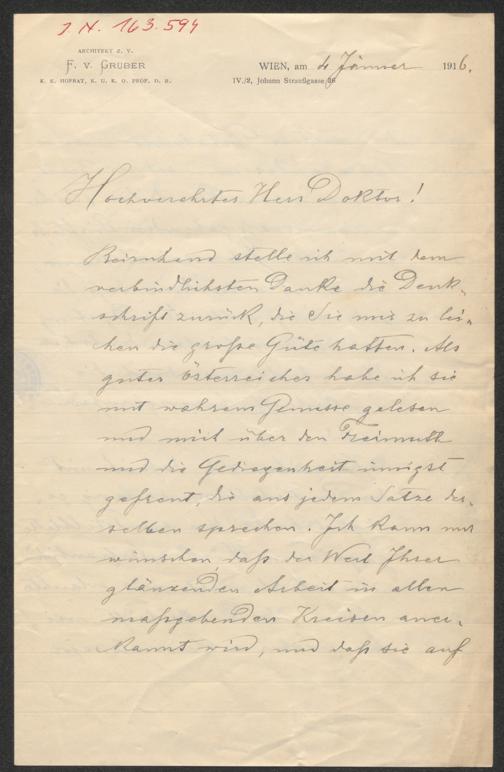 J. N. 163.594
ARCHITEKT Z. V.
F. V. GRUBER
K. K. HOFRAT, K. U. K. O. PROF. D. R.
WIEN, am 4. Jänner 1916.
IV./2, Johann Straußgasse 36
Hochverehrter Herr Doktor!
Beiruhend stelle ich mit dem
verbindlichsten Danke die Denk-
schrift zurück, die Sie mir zu lei-
hen die große Güte hatten. Als
guter Österreicher habe ich sie
mit wahrem Genusse gelesen
und mich über den Freimuth
und die Gediegenheit innigst
gefreut, die aus jedem Satze der-
selben sprechen. Ich kann nur
wünschen, daß der Wert Ihrer
glänzenden Arbeit in allen
maßgebenden Kreisen aner-
kannt wird, und daß sie auf